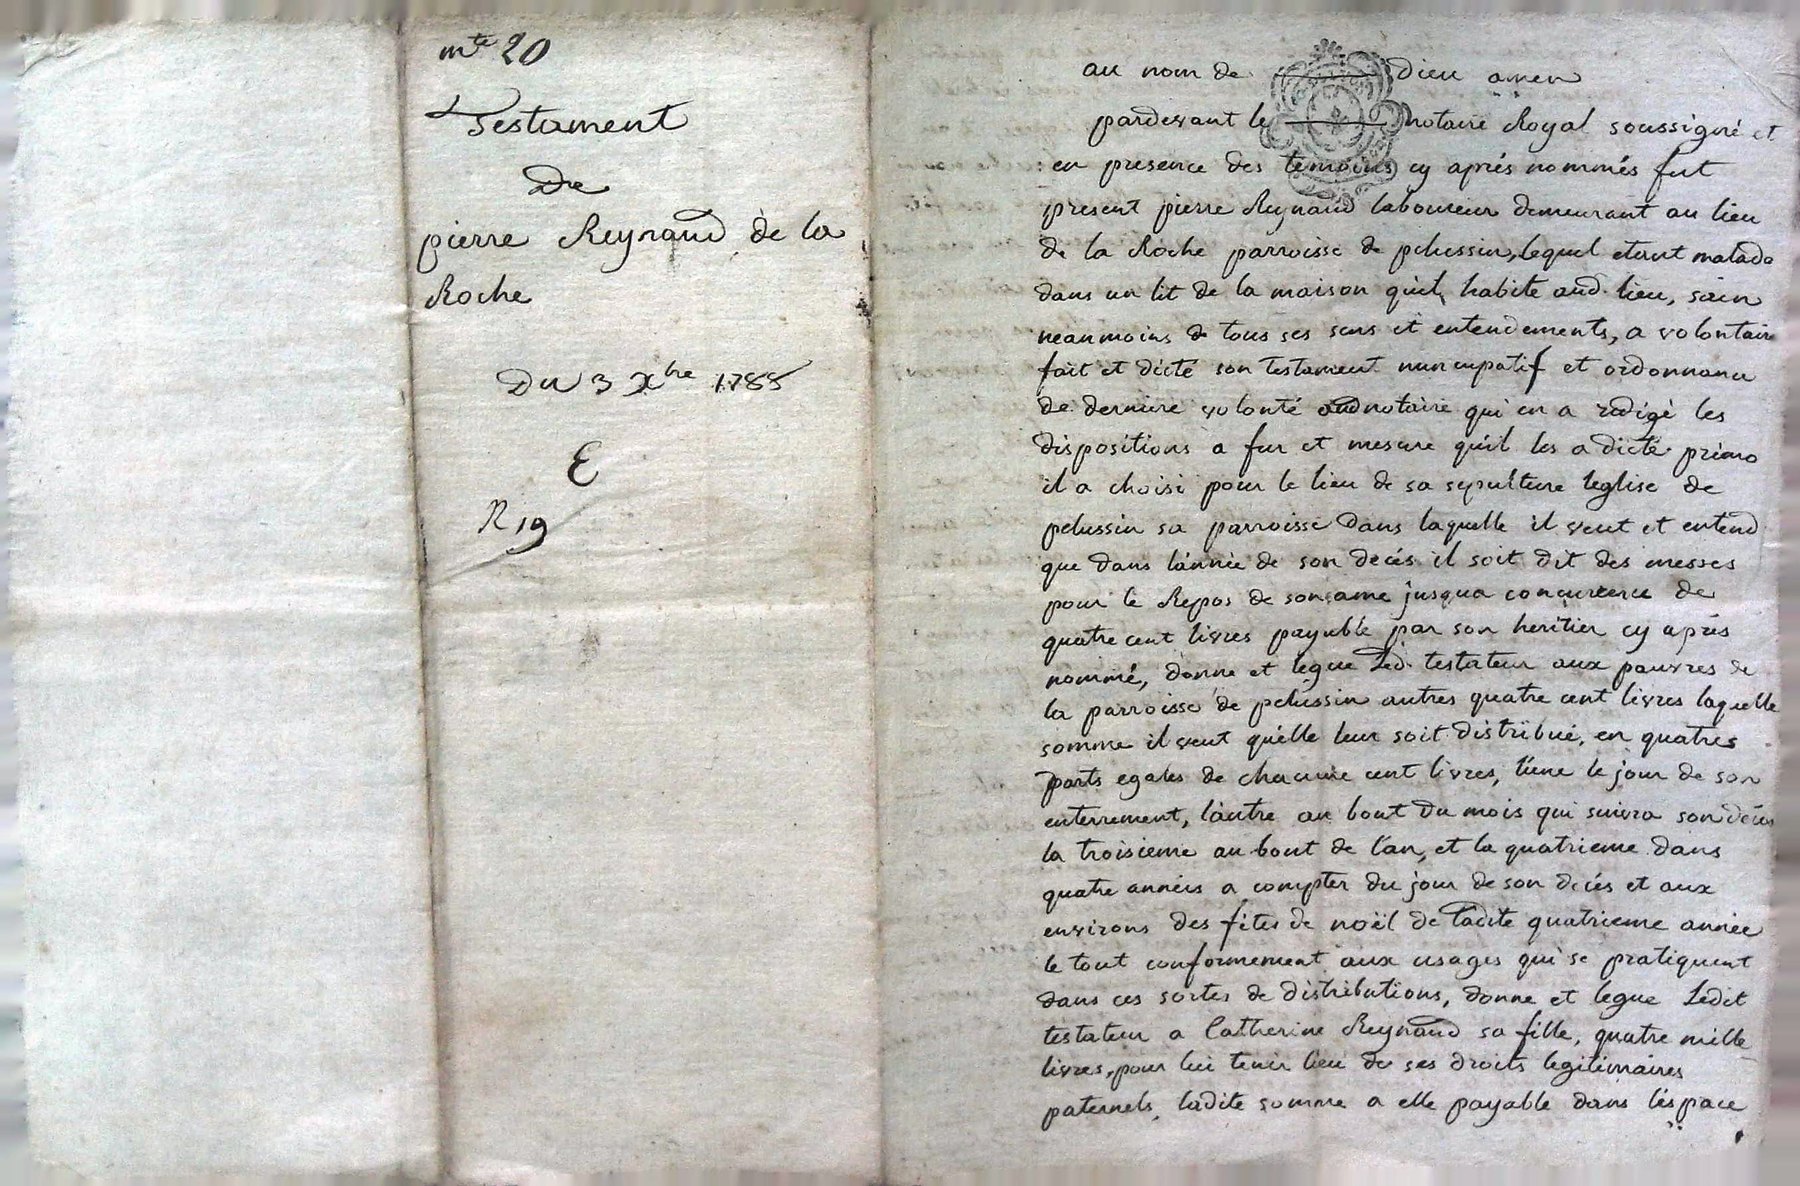 mte 20
Testament
De
pierre Reynaud de la
Roche
Du 3 Xbre 1788
E
R 19
au nom de dieu amen
pardevant le notaire Royal soussigné et
en presence des temoins cy aprés nommés fut
present pierre Reynaud laboureur demeurant au lieu
de la Roche parroisse de pelussin, lequel etant malade
dans un lit de la maison qu'il habite aud. lieu, sain
neanmoins de tous ses sens et entendements, a volontaire
fait et dicté son testament nuncupatif et ordonnance
de derniere volonté audnotaire qui en a redigé les
dispositions a fur et mesure qu'il les a dicté primo
il a choisi pour le lieu de sa sepulture leglise de
pelussin sa parroisse dans laquelle il veut et entend
que dans l'année de son decés il soit dit des messes
pour le Repos de son ame jusqua concurrence de
quatre cent livres payable par son heritier cy aprés
nommé, donne et legue Led. testateur aux pauvres de
la parroisse de pelussin autres quatre cent livres laquelle
somme il veut qu'elle leur soit distribué, en quatres
parts egales de chacune cent livres, l'une le jour de son
enterrement, l'autre au bout du mois qui suivra son décés
la troisieme au bout de l'an, et la quatrieme dans
quatre années a compter du jour de son decés et aux
environs des fêtes de noël de ladite quatrieme année
le tout conformement aux usages qui se pratiquent
dans ces sortes de distributions, donne et legue Ledit
testateur a Catherine Reynaud sa fille, quatre mille
livres, pour lui tenir lieu de ses droits legitimaires
paternels, ladite somme a elle payable dans l'espace